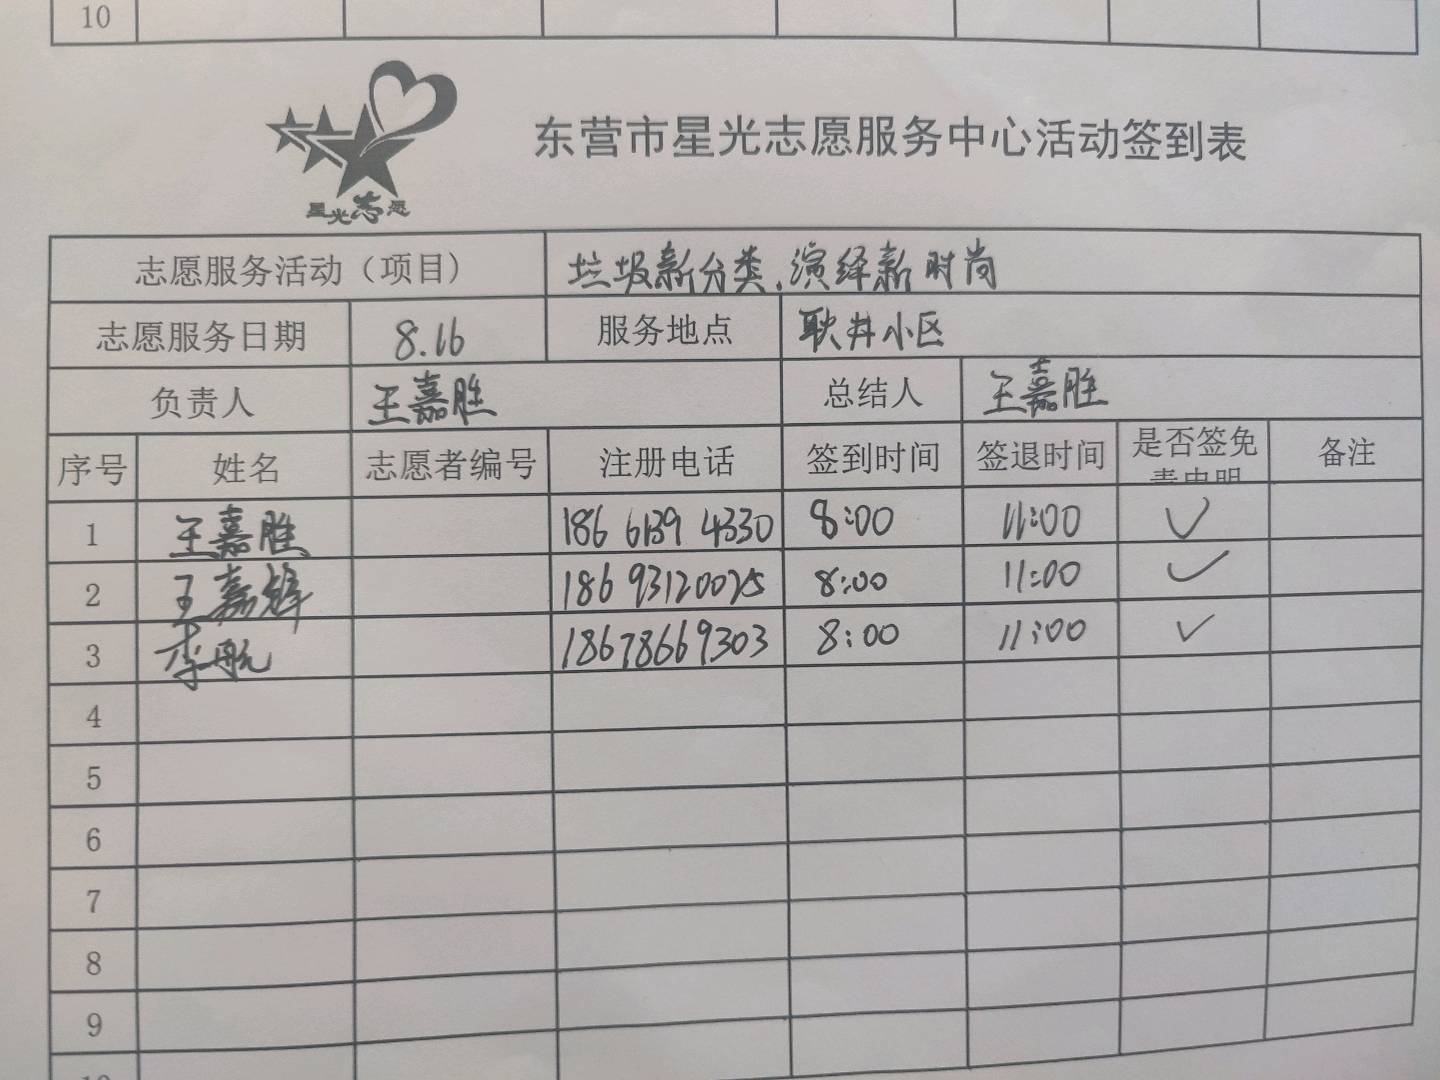 10
星光志愿
东营市星光志愿服务中心活动签到表
志愿服务活动（项目） 垃圾新分类,演绎新时尚
志愿服务日期 8.16 服务地点 耿井小区
负责人 王嘉胜 总结人 王嘉胜
序号 姓名 志愿者编号 注册电话 签到时间 签退时间 是否签免责申明 备注
1 王嘉胜 186 6139 4330 8:00 11:00 ✓
2 王嘉辉 18693120025 8:00 11:00 ✓
3 李航 18678669303 8:00 11:00 ✓
4
5
6
7
8
9
10